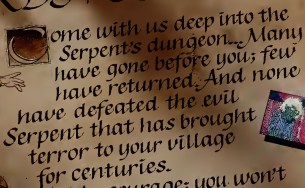 Come with us deep into the
Serpent's dungeon... Many
have gone before you; few
have returned. And none
have defeated the evil
Serpent that has brought
terror to your village
for centuries.
courage; you won't